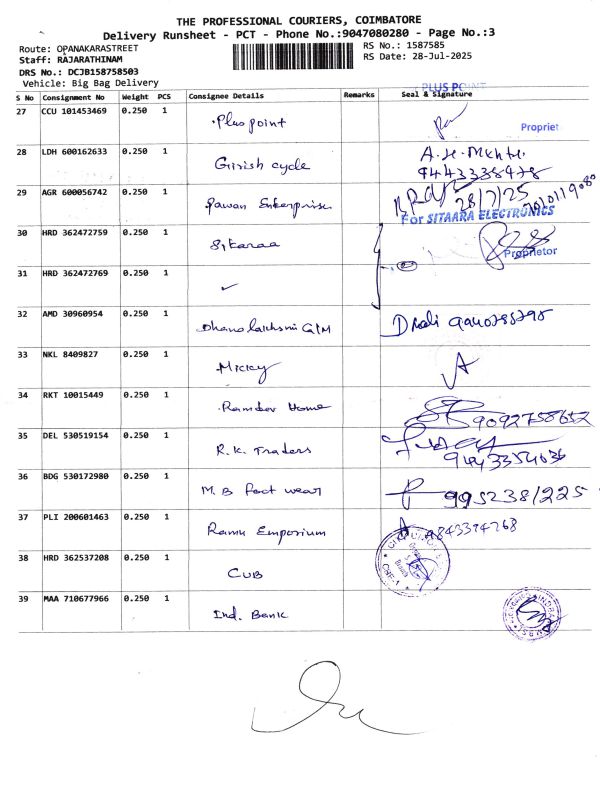 THE PROFESSIONAL COURIERS, COIMBATORE
Delivery Runsheet - PCT - Phone No.:9047080280 - Page No.:3
Route: OPANAKARASTREET
Staff: RAJARATHINAM
DRS No.: DCJB158758503
Vehicle: Big Bag Delivery
RS No.: 1587585
RS Date: 28-Jul-2025
PLUS POINT
S No Consignment No Weight PCS Consignee Details Remarks Seal & Signature
27 CCU 101453469 0.250 1 Plus point Propriet
28 LDH 600162633 0.250 1 Girish cycle
29 AGR 600056742 0.250 1 Pawan Enterprise 28/7/25
For SITAARA ELECTRONICS
30 HRD 362472759 0.250 1 Sitaraa Proprietor
31 HRD 362472769 0.250 1 ✓
32 AMD 30960954 0.250 1 Dhanalakshmi
33 NKL 8409827 0.250 1 Micky
34 RKT 10015449 0.250 1 Ramdev Home 9092758652
35 DEL 530519154 0.250 1 R.K. Traders
36 BDG 530172980 0.250 1 M.B Foot wear 9952381225
37 PLI 200601463 0.250 1 Ramu Emporium
38 HRD 362537208 0.250 1 CUB
39 MAA 710677966 0.250 1 Ind. Bank